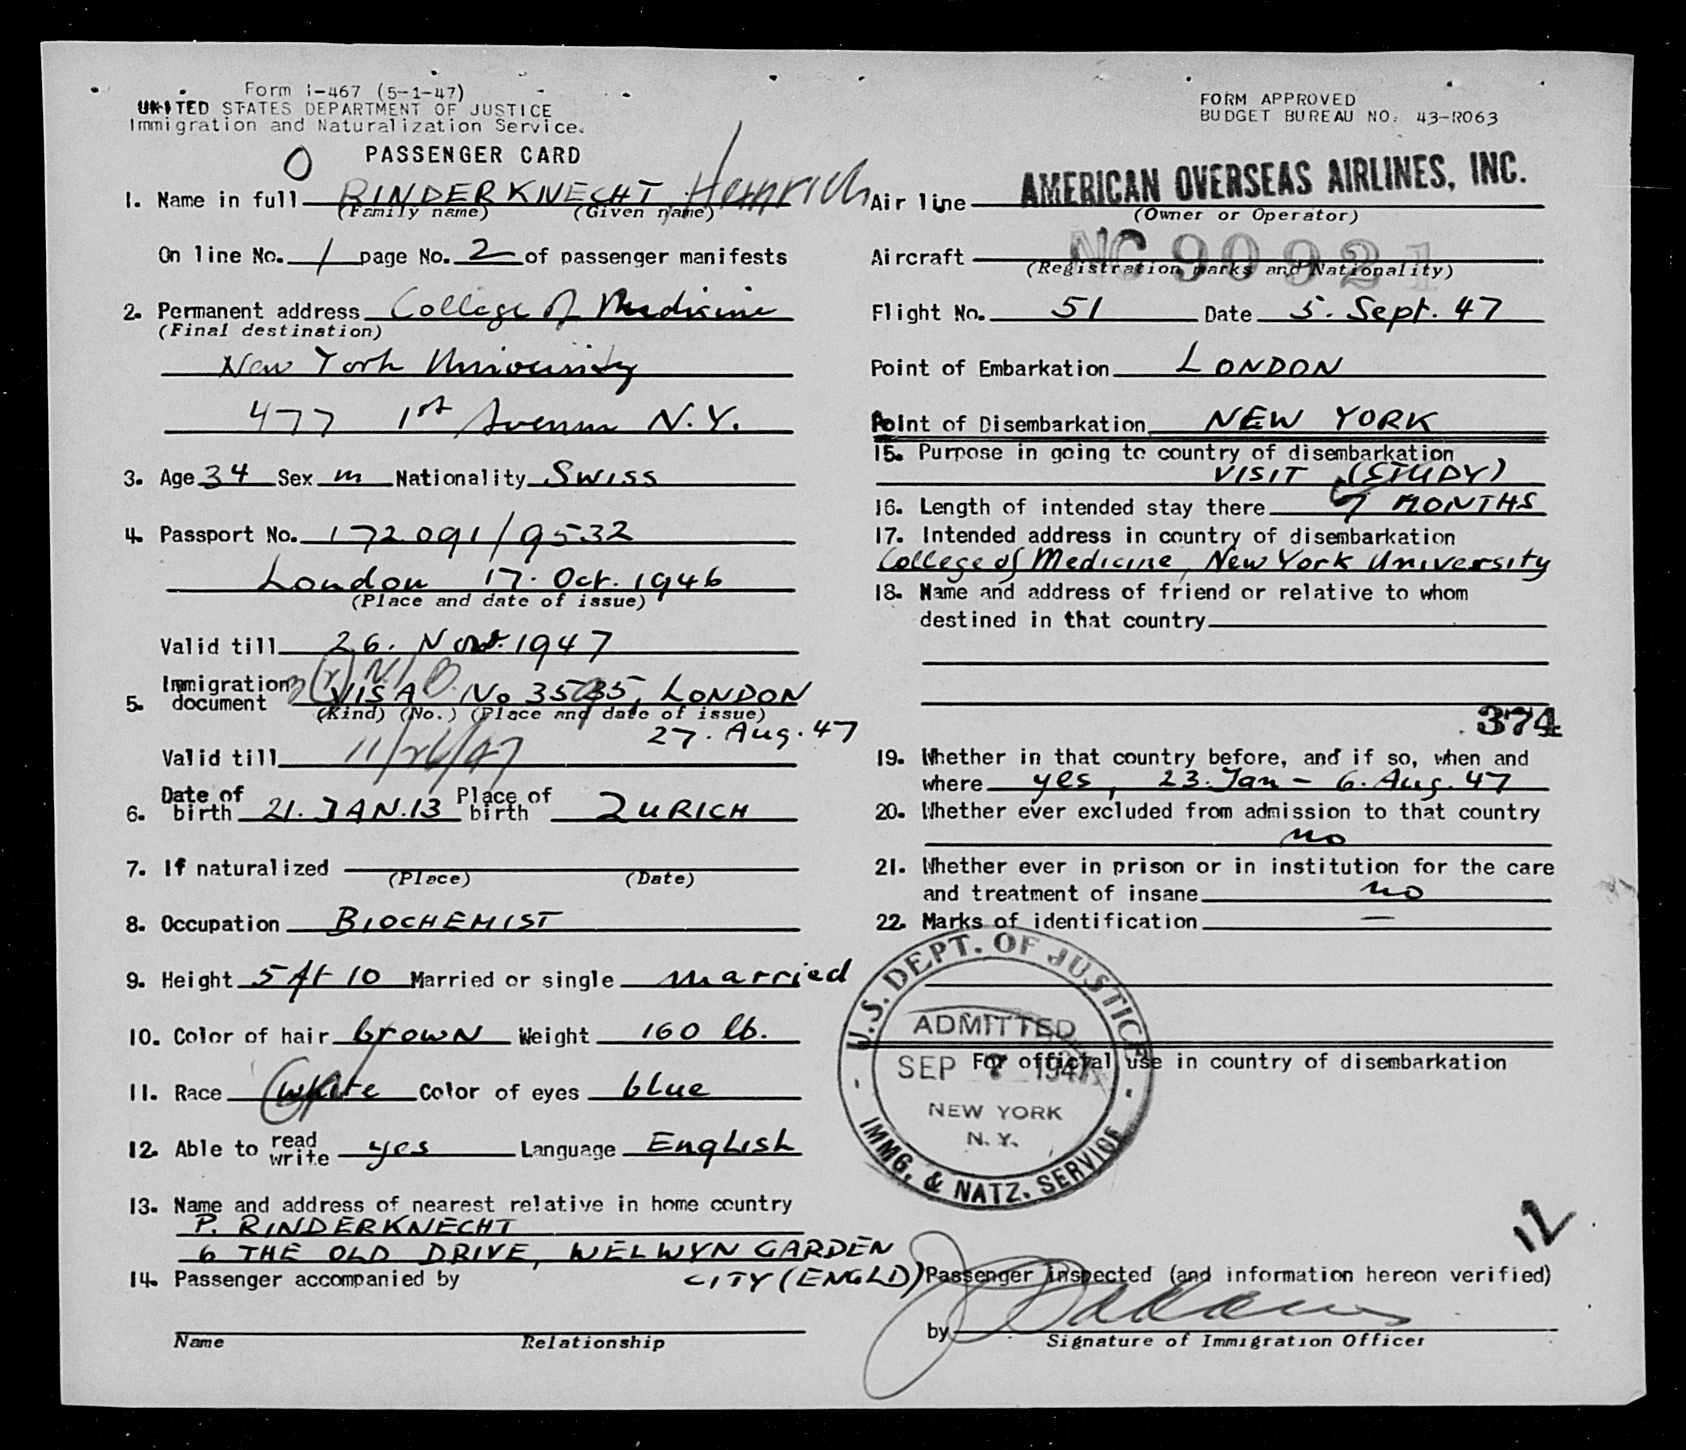 Form I-467 (5-1-47)
UNITED STATES DEPARTMENT OF JUSTICE
Immigration and Naturalization Service.
PASSENGER CARD
O
1. Name in full RINDERKNECHT Heinrich
(Family name) (Given name)
On line No. 1 page No. 2 of passenger manifests
2. Permanent address College of Medicine
(Final destination)
New York University
477 1st Avenue N.Y.
3. Age 34 Sex m Nationality Swiss
4. Passport No. 172091/9532
London 17. Oct. 1946
(Place and date of issue)
Valid till 26. Nov. 1947
5. Immigration document VISA No 3535, LONDON
(Kind) (No.) (Place and date of issue)
27. Aug. 47
Valid till 11/26/47
6. Date of birth 21. JAN. 13 Place of birth ZURICH
7. If naturalized
(Place) (Date)
8. Occupation BIOCHEMIST
9. Height 5 ft 10 Married or single married
10. Color of hair brown Weight 160 lb.
11. Race white Color of eyes blue
12. Able to read write yes Language English
13. Name and address of nearest relative in home country
P. RINDERKNECHT
6 THE OLD DRIVE, WELWYN GARDEN
CITY (ENGLD)
14. Passenger accompanied by
Name Relationship
FORM APPROVED
BUDGET BUREAU NO. 43-R063
Air line AMERICAN OVERSEAS AIRLINES, INC.
(Owner or Operator)
Aircraft NC 90921
(Registration marks and Nationality)
Flight No. 51 Date 5. Sept. 47
Point of Embarkation LONDON
Point of Disembarkation NEW YORK
15. Purpose in going to country of disembarkation
VISIT (STUDY)
16. Length of intended stay there MONTHS
17. Intended address in country of disembarkation
College of Medicine, New York University
18. Name and address of friend or relative to whom
destined in that country
374
19. Whether in that country before, and if so, when and
where yes, 23. Jan - 6. Aug. 47
20. Whether ever excluded from admission to that country
no
21. Whether ever in prison or in institution for the care
and treatment of insane no
22. Marks of identification —
U.S. DEPT. OF JUSTICE
ADMITTED
SEP 7 1947
NEW YORK
N. Y.
IMMG. & NATZ. SERVICE
For official use in country of disembarkation
12
Passenger inspected (and information hereon verified)
by
Signature of Immigration Officer